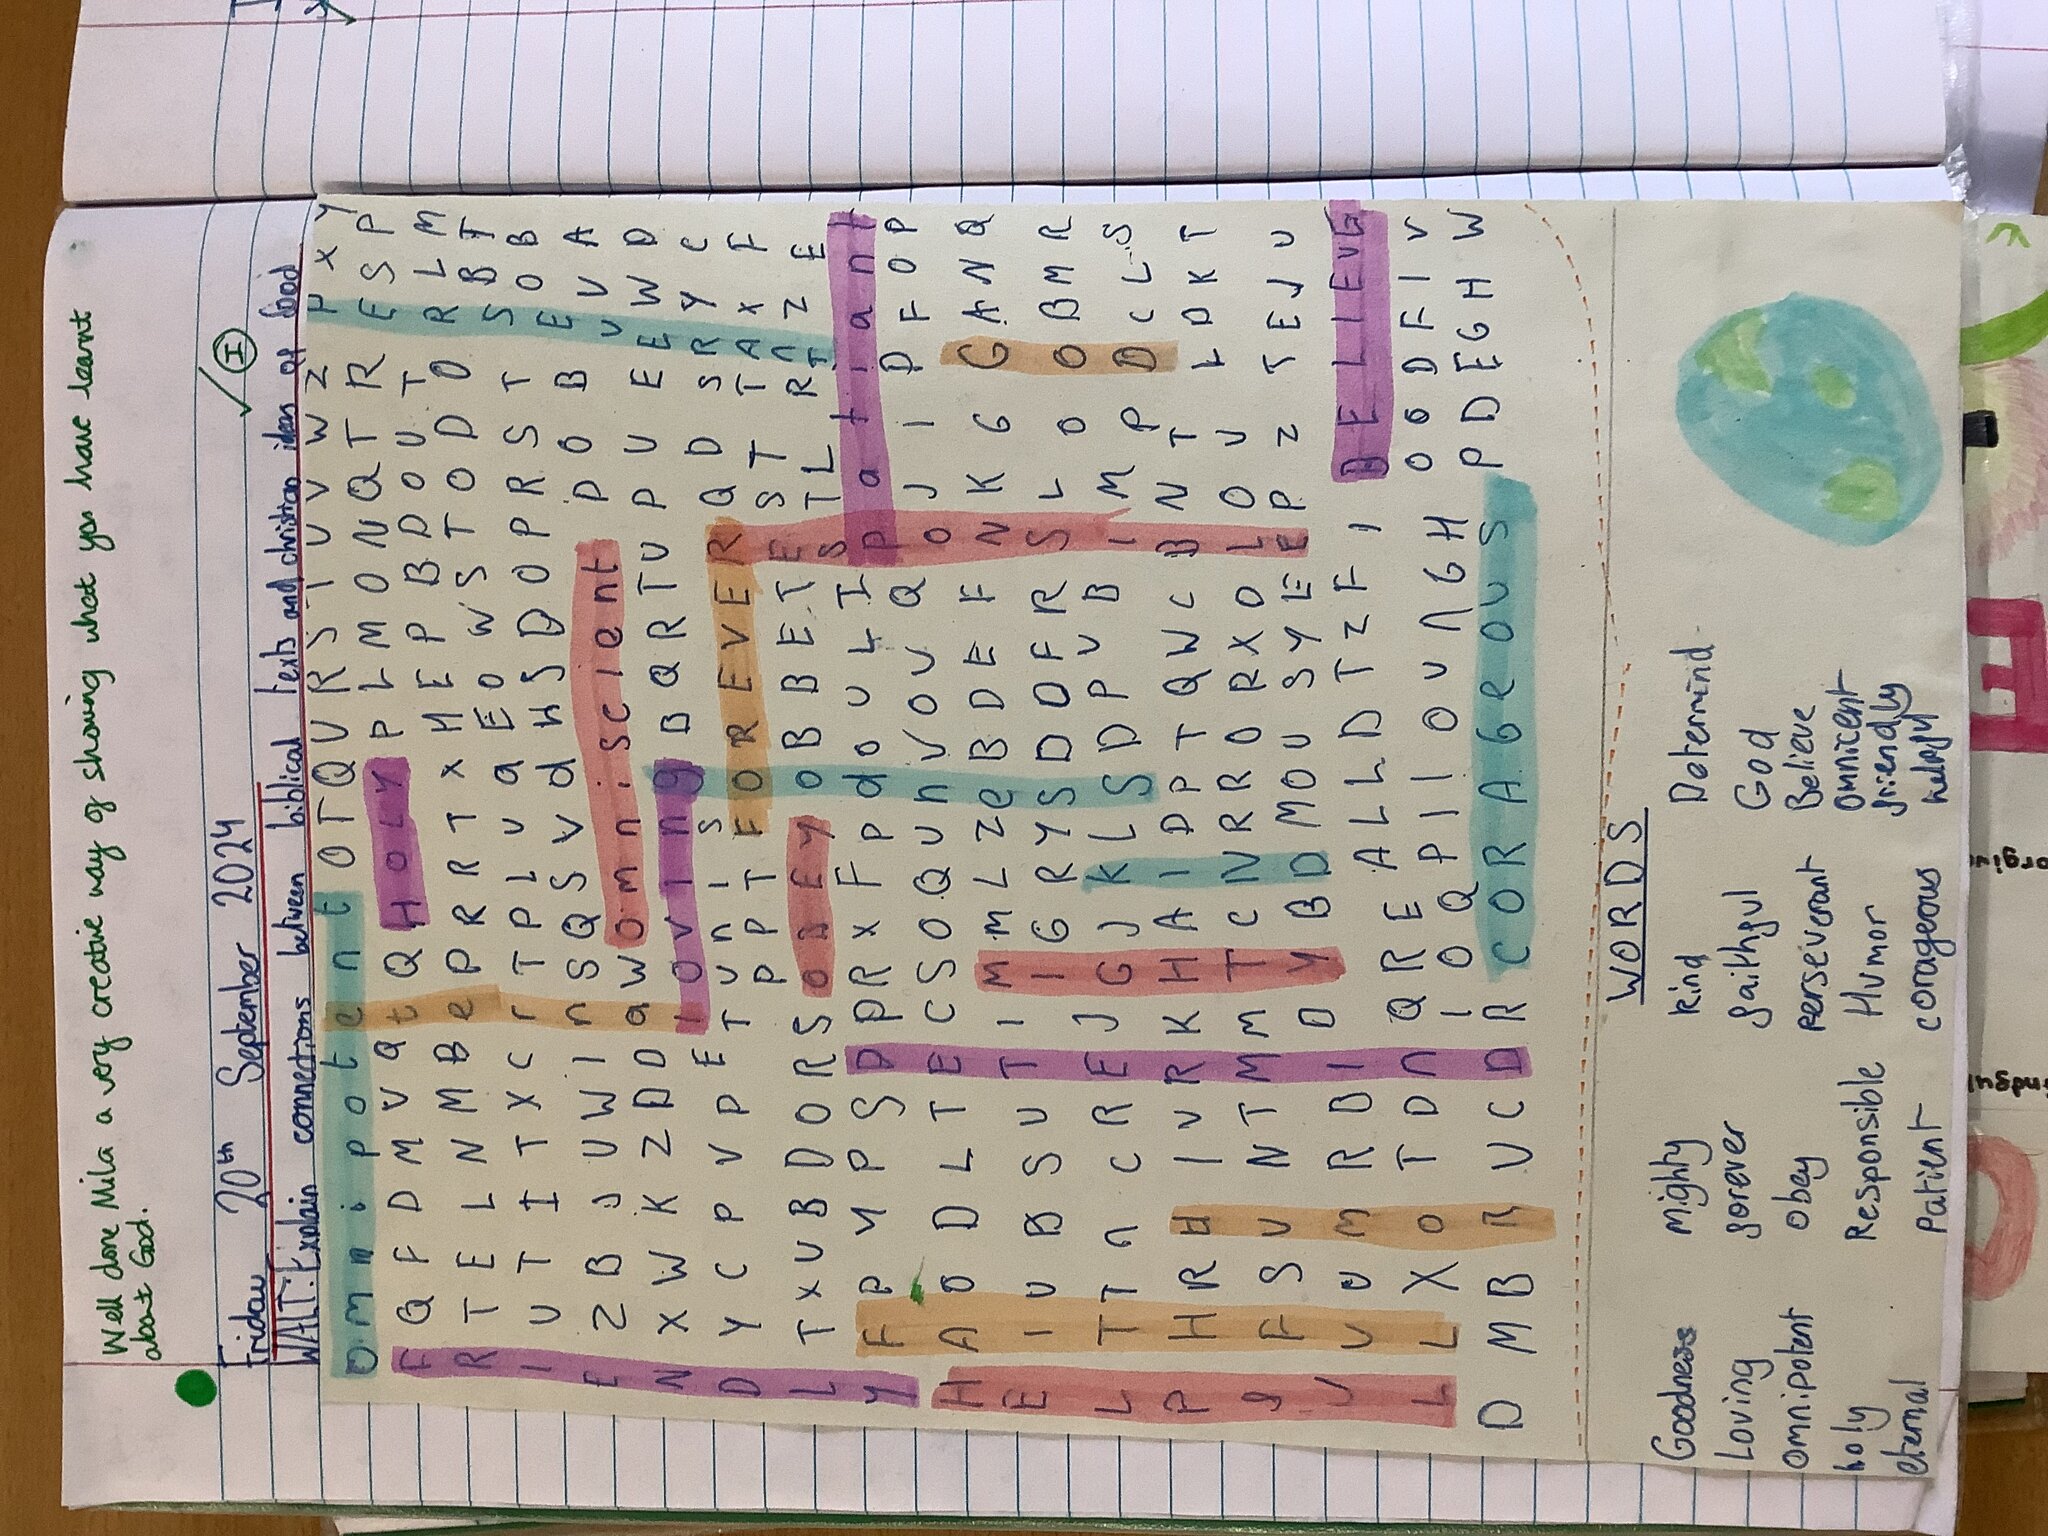 Well done Mila a very creative way of showing what you have learnt
about God.
Friday 20th September 2024
I
WALT: Explain connections between biblical texts and christian ideas of God
omnipotent O T Q U R S T U V W Z P X Y
F Q F D M V Q t Q H O L Y P L M O N Q T R E S P
R T E L N M B e P R R T X H E P B D O U T R L M
I U T I T X C r T P L U a E O W S T O D O S B T
E Z B J U W I n S Q S V d H S D O P R S T E O B
N X W K Z D D a W O m n i s c i e n t P O B V U A
D Y C P V P E l o v i n g B Q R T U P U E E W D
T U n I S Q D S R Y C
P P T F O R E V E R S T T A X F
L T X U B D O R S O B E Y O B B E T E T L R n Z E
Y F P Y P S D P R X F P d O U L I P a t i a n t
H A O D L T E C S O Q U n V O U Q O J I P F O P
E I U B S U T I M M L Z e B D E F N K G G A N Q
L T T n C R E J I G R Y S D D F R S L O O B M R
P H R H I V R K G J K L S D P V B I M P D C L S
F S U N T M M H A I D P T Q W C B N T L D K T
U V U M R B I O T C N R R O R X O L O V
L L X O T D n Y B D M O U S Y L E E P Z T E J U
A L L D T Z F I B E L I E V E
Q R E O O D F I V
I O Q P I I O U N G H P D E G H W
D M B R U C D R C O R A G e O U S
WORDS
Goodness mighty kind Determind
Loving forever faithful God
omnipotent obey perseverant Believe
holy Responsible Humor omnicent
friendly
eternal patient corageous helpful